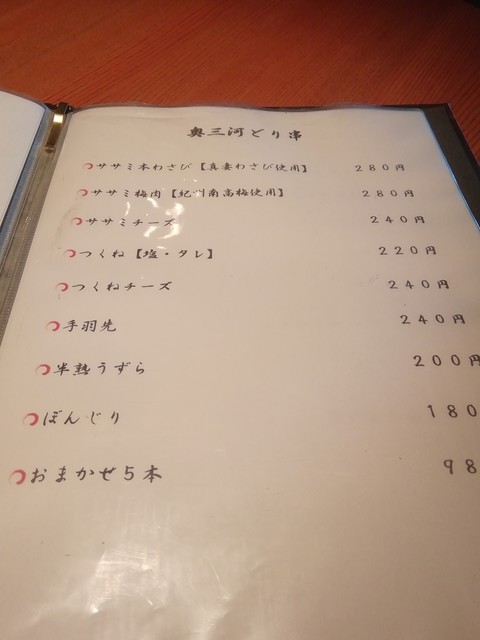 奥三河どり串
ササミ本わさび【真妻わさび使用】 280円
ササミ梅肉【紀州南高梅使用】 280円
ササミチーズ 240円
つくね【塩・タレ】 220円
つくねチーズ 240円
手羽先 240円
半熟うずら 200円
ぼんじり 180
おまかせ5本 98